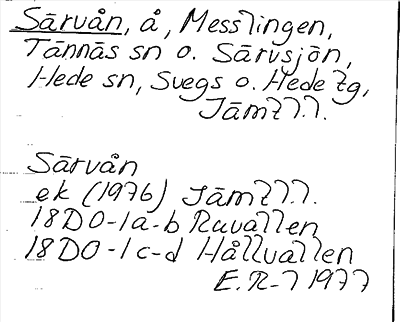 Särvån, å, Messlingen,
Tännäs sn o. Särvsjön,
Hede sn, Svegs o. Hede tg,
Jämtl.
Särvån
ek (1976) Jämtl.
18D0-1a-b Ruvallen
18D0-1c-d Hållvallen
E.R-7 1977